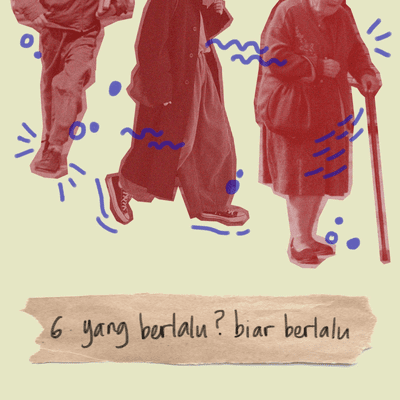 6. yang berlalu? biar berlalu